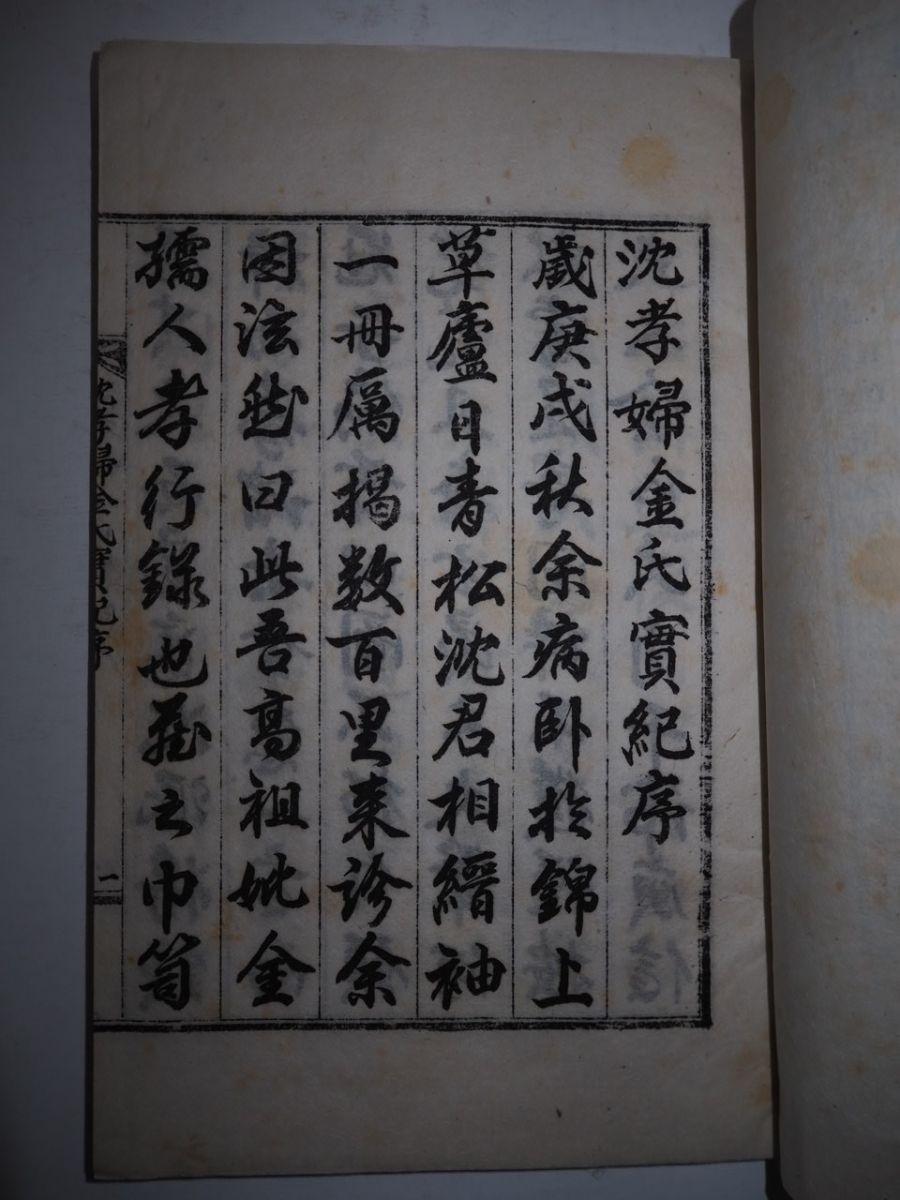 沈孝婦金氏實紀序
歲庚戌秋余病臥於錦上
草廬日青松沈君相縉袖
一冊屩揭数百里来診余
因泫然曰此吾高祖妣金
孺人孝行錄也藏之巾笥
沈孝婦金氏實紀序
一